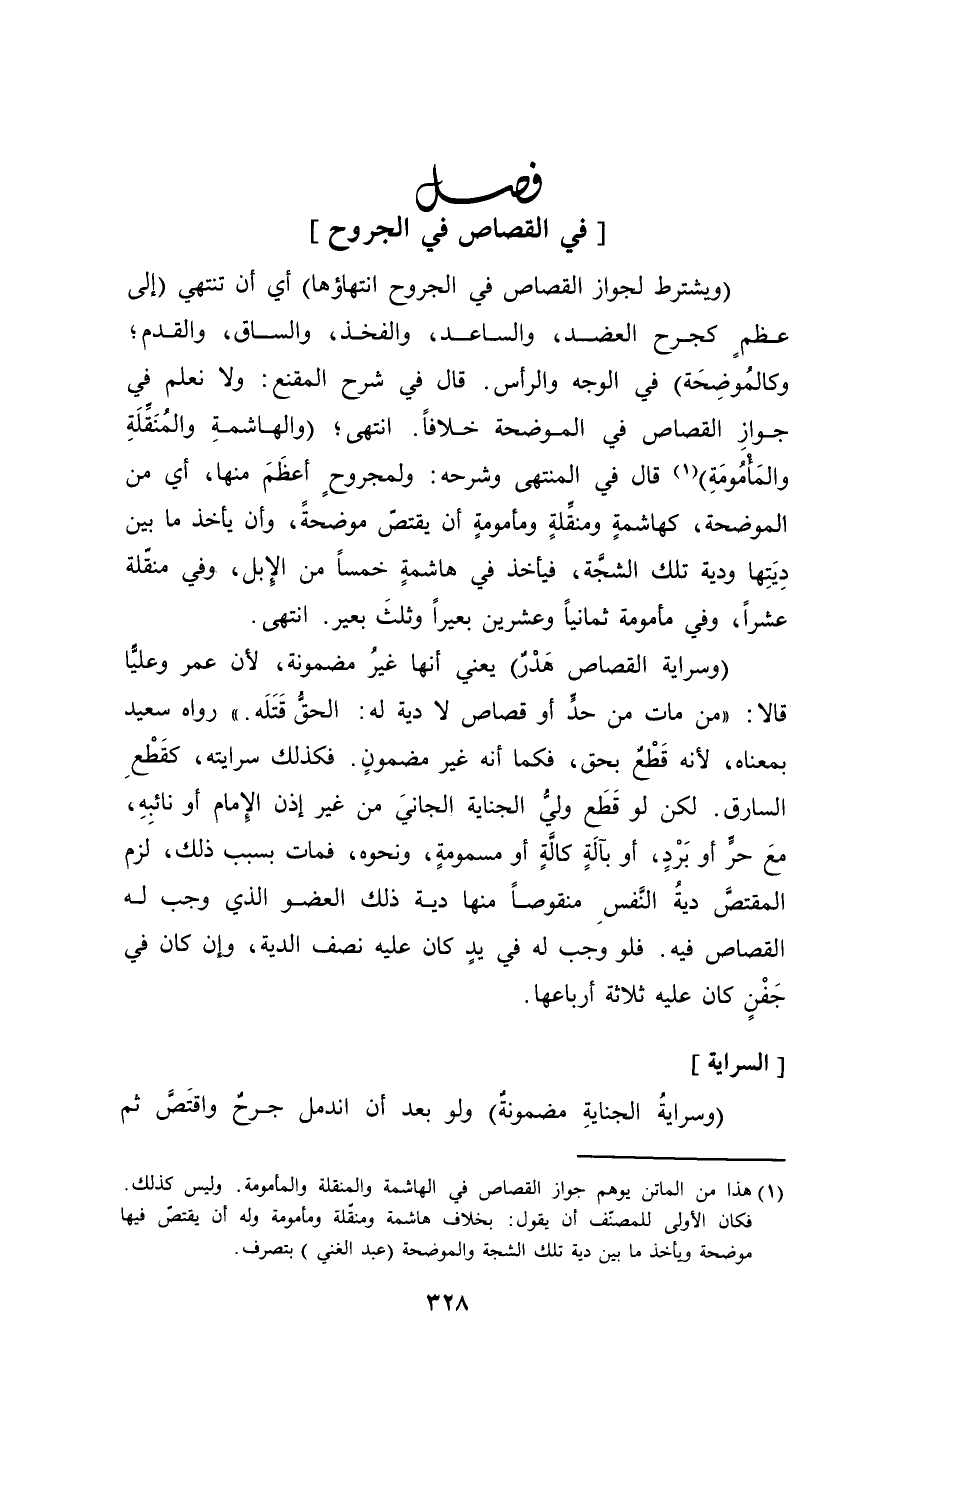 فصــل
[ في القصاص في الجروح ]
(ويشترط لجواز القصاص في الجروح انتهاؤها) أي أن تنتهي (إلى
عـظمٍ كجـرح العضـد، والسـاعـد، والفخـذ، والسـاق، والقـدم؛
وكالمُوضِحَة) في الوجه والرأس. قال في شرح المقنع: ولا نعلم في
جـوازِ القصاص في المـوضحة خـلافاً. انتهى؛ (والهـاشمـةِ والمُنَقِّلَةِ
والمَأْمُومَةِ)(١) قال في المنتهى وشرحه: ولمجروحٍ أعظَمَ منها، أي من
الموضحة، كهاشمةٍ ومنقِّلةٍ ومأمومةٍ أن يقتصّ موضحةً، وأن يأخذ ما بين
دِيَتِها ودية تلك الشجَّة، فيأخذ في هاشمةٍ خمساً من الإِبل، وفي منقّلة
عشراً، وفي مأمومة ثمانياً وعشرين بعيراً وثلثَ بعير. انتهى.
(وسراية القصاص هَدْرٌ) يعني أنها غيرُ مضمونة، لأن عمر وعليًّا
قالا: «من مات من حدٍّ أو قصاص لا دية له: الحقُّ قَتَلَه.» رواه سعيد
بمعناه، لأنه قَطْعٌ بحق، فكما أنه غير مضمونٍ. فكذلك سرايته، كقَطْعِ
السارق. لكن لو قَطَع وليُّ الجناية الجانيَ من غير إذن الإِمام أو نائبِهِ،
معَ حرٍّ أو بَرْدٍ، أو بآلَةٍ كالَّةٍ أو مسمومةٍ، ونحوه، فمات بسبب ذلك، لزم
المقتصَّ ديةُ النَّفسِ منقوصـاً منها ديـة ذلك العضـو الذي وجب لـه
القصاص فيه. فلو وجب له في يدٍ كان عليه نصف الدية، وإن كان في
جَفْنٍ كان عليه ثلاثة أرباعها.
[ السراية ]
(وسرايةُ الجنايةِ مضمونةٌ) ولو بعد أن اندمل جـرحٌ واقتَصَّ ثم
(١) هذا من الماتن يوهم جواز القصاص في الهاشمة والمنقلة والمأمومة. وليس كذلك.
فكان الأولى للمصنّف أن يقول: بخلاف هاشمة ومنقّلة ومأمومة وله أن يقتصّ فيها
موضحة ويأخذ ما بين دية تلك الشجة والموضحة (عبد الغني ) بتصرف.
٣٢٨